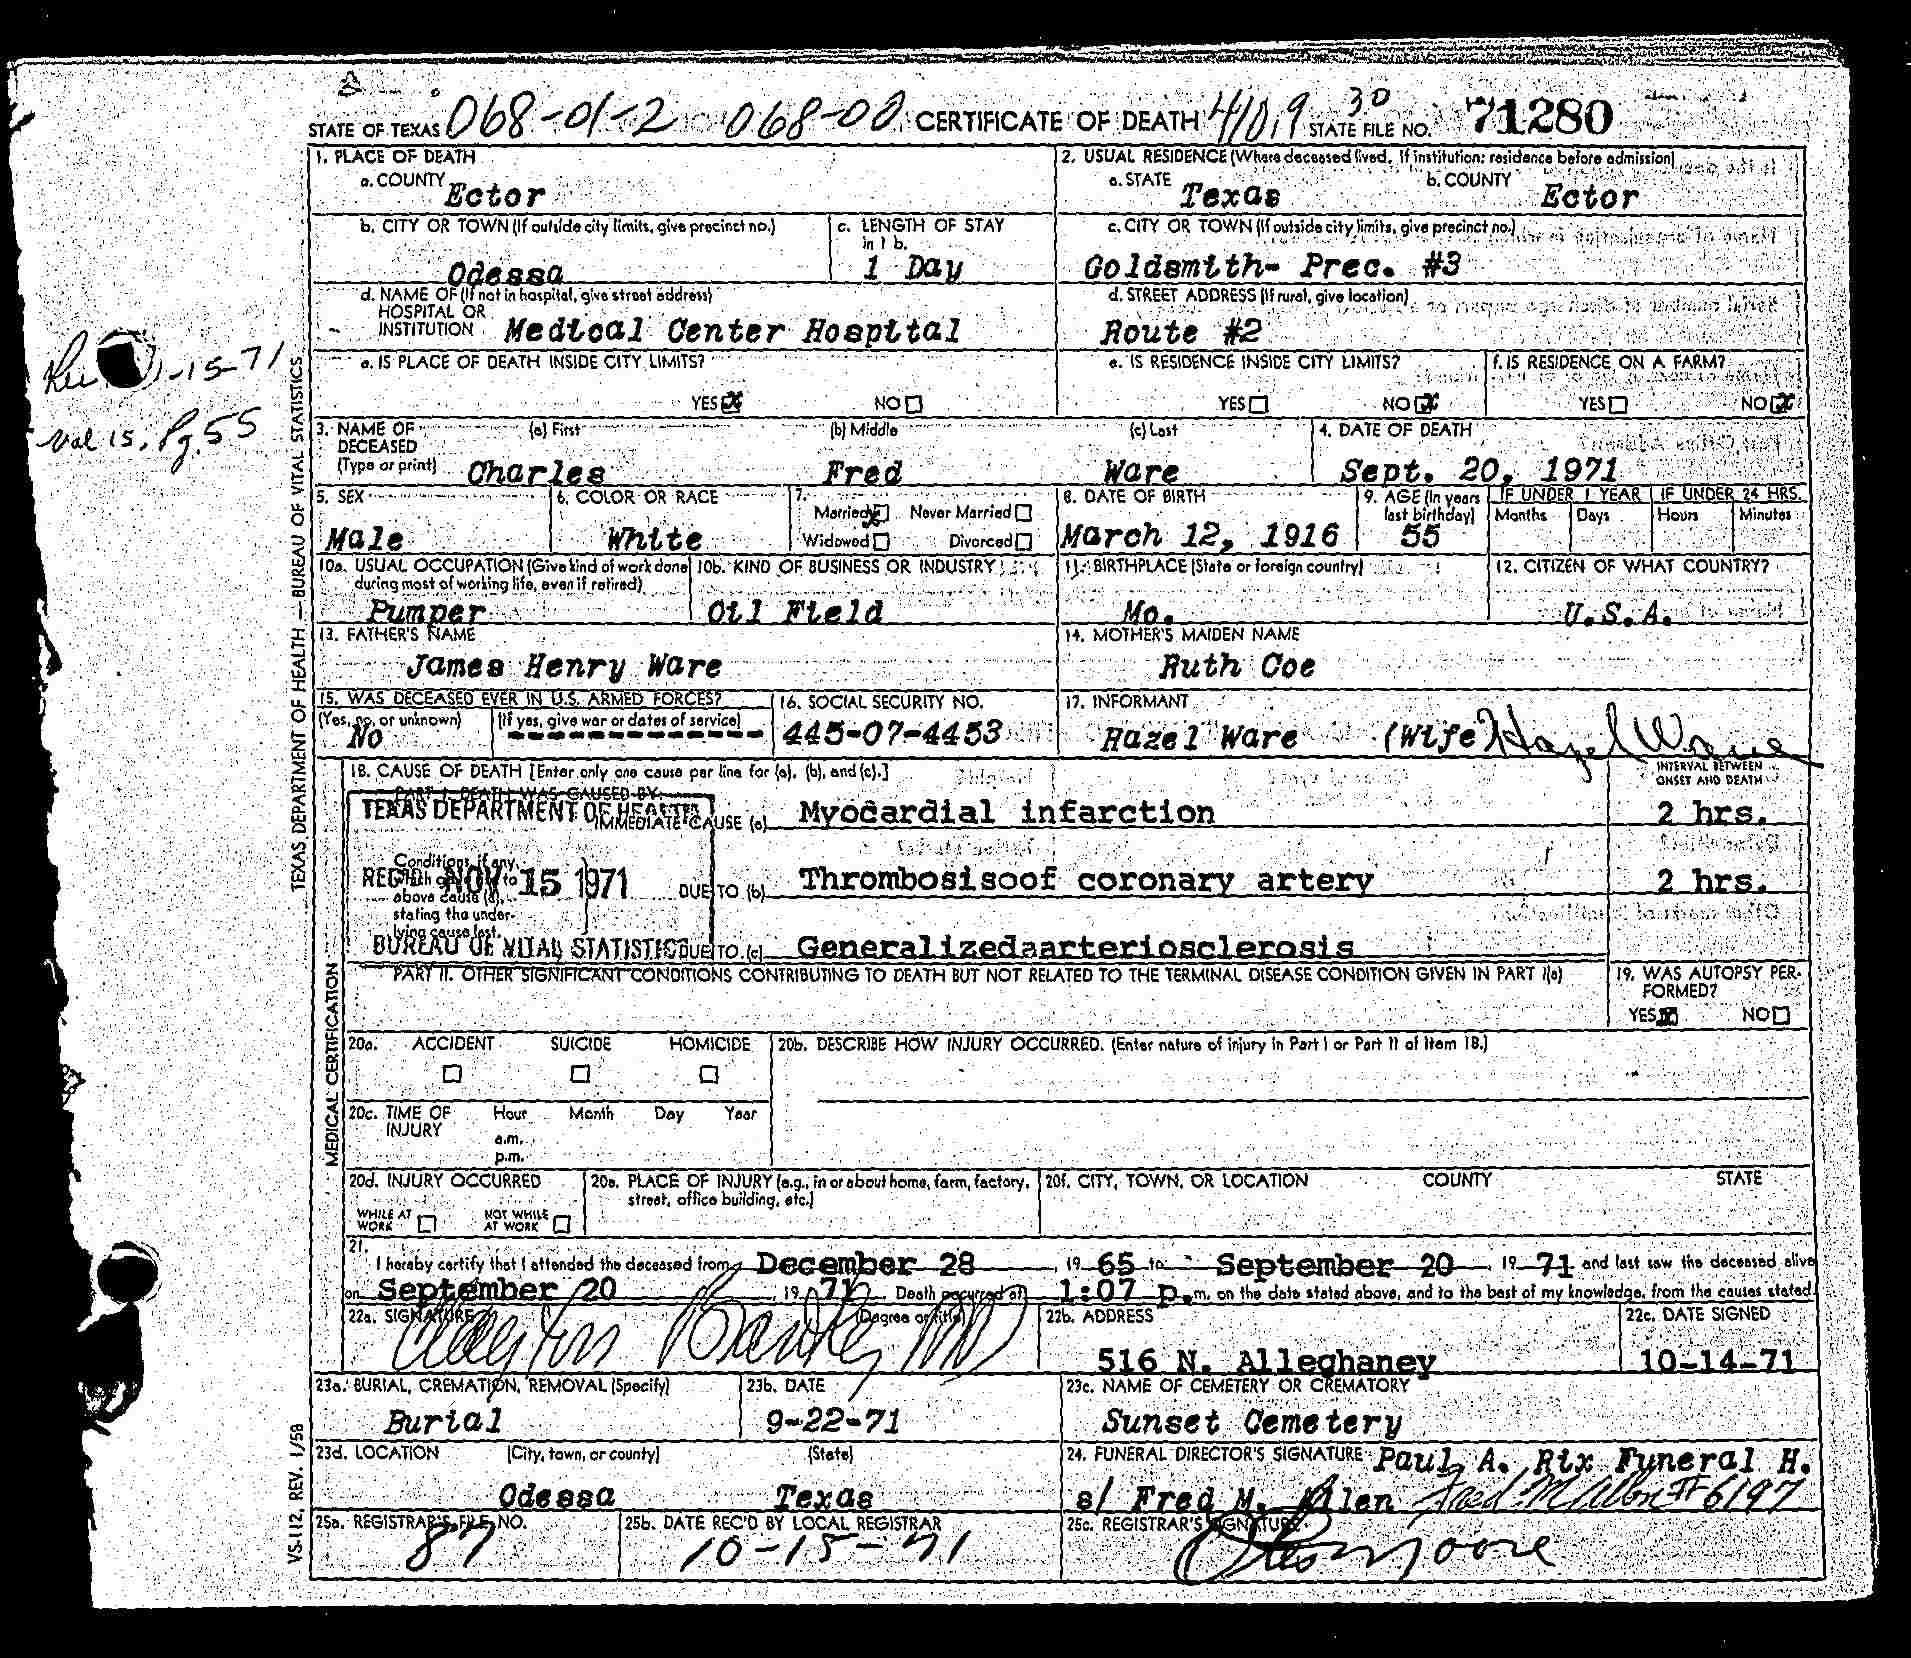 STATE OF TEXAS 068-01-2 068-00 CERTIFICATE OF DEATH 410.9 30 STATE FILE NO. 71280
1. PLACE OF DEATH
a. COUNTY Ector
2. USUAL RESIDENCE (Where deceased lived. If institution: residence before admission)
a. STATE Texas b. COUNTY Ector
b. CITY OR TOWN (If outside city limits, give precinct no.) Odessa
c. LENGTH OF STAY in 1 b. 1 Day
c. CITY OR TOWN (If outside city limits, give precinct no.)
Goldsmith- Prec. #3
d. NAME OF (If not in hospital, give street address)
HOSPITAL OR
INSTITUTION Medical Center Hospital
d. STREET ADDRESS (If rural, give location)
Route #2
e. IS PLACE OF DEATH INSIDE CITY LIMITS?
YES x NO
e. IS RESIDENCE INSIDE CITY LIMITS?
YES NO x
f. IS RESIDENCE ON A FARM?
YES NO x
-15-71
Val 15, Pg. 55
3. NAME OF DECEASED (Type or print)
(a) First Charles (b) Middle Fred (c) Last Ware
4. DATE OF DEATH
Sept. 20, 1971
5. SEX
Male
6. COLOR OR RACE
White
7. Married x Never Married
Widowed Divorced
8. DATE OF BIRTH
March 12, 1916
9. AGE (In years last birthday)
55
IF UNDER 1 YEAR IF UNDER 24 HRS.
Months Days Hours Minutes
10a. USUAL OCCUPATION (Give kind of work done during most of working life, even if retired)
Pumper
10b. KIND OF BUSINESS OR INDUSTRY
Oil Field
11. BIRTHPLACE (State or foreign country)
Mo.
12. CITIZEN OF WHAT COUNTRY?
U.S.A.
13. FATHER'S NAME
James Henry Ware
14. MOTHER'S MAIDEN NAME
Ruth Coe
15. WAS DECEASED EVER IN U.S. ARMED FORCES?
(Yes, no, or unknown) (If yes, give war or dates of service)
No --------------
16. SOCIAL SECURITY NO.
445-07-4453
17. INFORMANT
Hazel Ware (Wife) Hazel Ware
18. CAUSE OF DEATH [Enter only one cause per line for (a), (b), and (c).]
INTERVAL BETWEEN ONSET AND DEATH
PART I. DEATH WAS CAUSED BY:
IMMEDIATE CAUSE (a) Myocardial infarction 2 hrs.
Conditions, if any, which gave rise to above cause (a), stating the underlying cause last.
DUE TO (b) Thrombosisoof coronary artery 2 hrs.
DUE TO (c) Generalizedaarteriosclerosis
TEXAS DEPARTMENT OF HEALTH
REC'D NOV 15 1971
BUREAU OF VITAL STATISTICS
PART II. OTHER SIGNIFICANT CONDITIONS CONTRIBUTING TO DEATH BUT NOT RELATED TO THE TERMINAL DISEASE CONDITION GIVEN IN PART I(a)
19. WAS AUTOPSY PERFORMED?
YES x NO
20a. ACCIDENT SUICIDE HOMICIDE
20b. DESCRIBE HOW INJURY OCCURRED. (Enter nature of injury in Part I or Part II of Item 18.)
20c. TIME OF INJURY Hour Month Day Year
a.m.
p.m.
20d. INJURY OCCURRED
WHILE AT WORK NOT WHILE AT WORK
20e. PLACE OF INJURY (e.g., in or about home, farm, factory, street, office building, etc.)
20f. CITY, TOWN, OR LOCATION COUNTY STATE
21. I hereby certify that I attended the deceased from December 28, 19 65 to September 20, 19 71 and last saw the deceased alive
on September 20, 19 71. Death occurred at 1:07 p.m. on the date stated above, and to the best of my knowledge, from the causes stated.
22a. SIGNATURE (Degree or title)
MD
22b. ADDRESS
516 N. Alleghaney
22c. DATE SIGNED
10-14-71
23a. BURIAL, CREMATION, REMOVAL (Specify)
Burial
23b. DATE
9-22-71
23c. NAME OF CEMETERY OR CREMATORY
Sunset Cemetery
23d. LOCATION (City, town, or county) (State)
Odessa Texas
24. FUNERAL DIRECTOR'S SIGNATURE Paul A. Rix Funeral H.
s/ Fred M. Allen Fred M Allen # 6197
25a. REGISTRAR'S FILE NO.
87
25b. DATE REC'D BY LOCAL REGISTRAR
10-15-71
25c. REGISTRAR'S SIGNATURE
Moore
TEXAS DEPARTMENT OF HEALTH — BUREAU OF VITAL STATISTICS
MEDICAL CERTIFICATION
VS-112, REV. 1/58